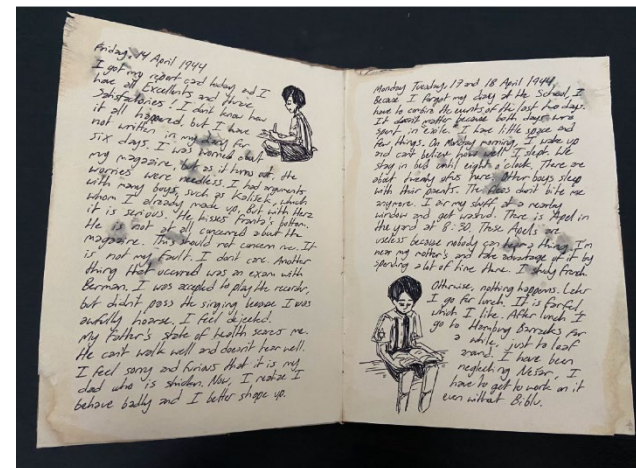 Friday, 14 April 1944
I got my report card today and I
have all Excellents and three
Satisfactories! I don't know how
it all happened, but I have
not written in my diary for
six days. I was worried about
my magazine, but as it turns out, the
worries were needless. I had arguments
with many boys, such as Kalisek, which
whom I already made up. But with Herz
it is serious. He kisses Franta's bottom.
He is not at all concerned about the
magazine. This should not concern me. It
is not my fault. I don't care. Another
thing that occurred was an exam with
Berman. I was accepted to play the recorder,
but didn't pass the singing because I was
awfully hoarse. I feel dejected.
My father's state of health scares me.
He can't walk well and doesn't hear well.
I feel sorry and furious that it is my
dad who is stricken. Now, I realize I
behave badly and I better shape up.
Monday Tuesday, 17 and 18 April 1944
Because I forgot my diary at the School, I
have to combine the events of the last two days.
It doesn't matter because both days were
spent in "exile." I have little space and
few things. On Monday morning, I wake up
and can't believe how well I slept. We
stay in bed until eight o'clock. There are
about twenty of us here. Other boys sleep
with their parents. The fleas don't bite me
anymore. I air my stuff at a nearby
window and get washed. There is Apel in
the yard at 8:30. These Apels are
useless because nobody can hear a thing. I'm
near my mother's and take advantage of it by
spending a bit of time there. I study French.
Otherwise, nothing happens. Later
I go for lunch. It is farfel,
which I like. After lunch, I
go to Hamburg Barracks for
a while, just to loaf
around. I have been
neglecting Nesar. I
have to get to work on it
even without Bibls.